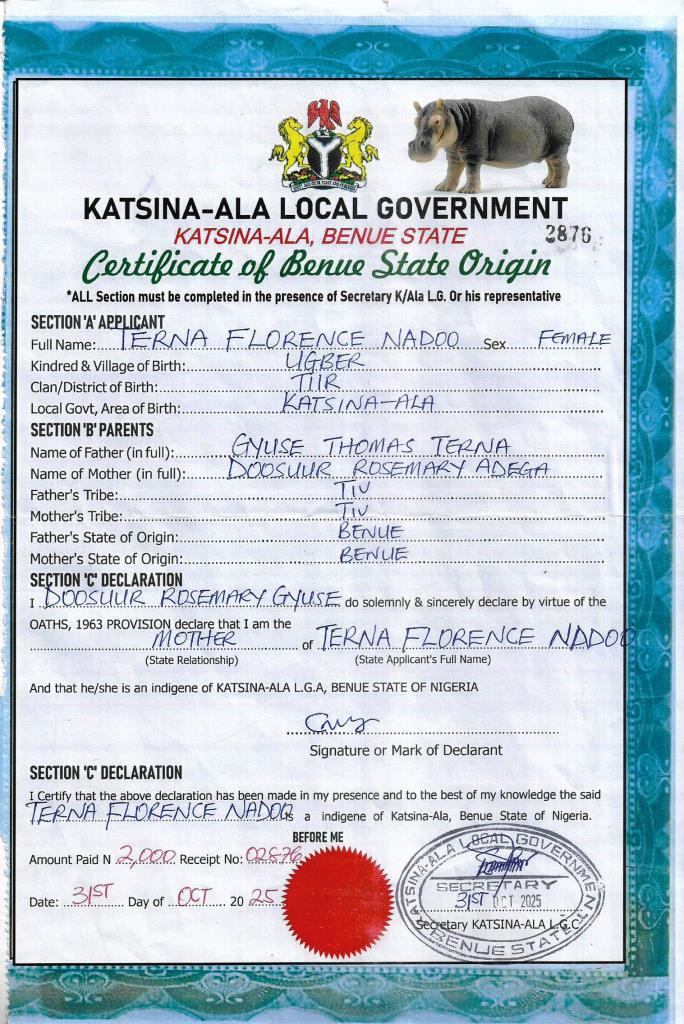 KATSINA-ALA LOCAL GOVERNMENT
KATSINA-ALA, BENUE STATE
2876
Certificate of Benue State Origin
*ALL Section must be completed in the presence of Secretary K/Ala L.G. Or his representative
SECTION 'A' APPLICANT
Full Name: TERNA FLORENCE NADOO Sex FEMALE
Kindred & Village of Birth: UGBER
Clan/District of Birth: TIIR
Local Govt, Area of Birth: KATSINA-ALA
SECTION 'B' PARENTS
Name of Father (in full): GYUSE THOMAS TERNA
Name of Mother (in full): DOOSUUR ROSEMARY ADEGA
Father's Tribe: TIV
Mother's Tribe: TIV
Father's State of Origin: BENUE
Mother's State of Origin: BENUE
SECTION 'C' DECLARATION
I DOOSUUR ROSEMARY GYUSE do solemnly & sincerely declare by virtue of the
OATHS, 1963 PROVISION declare that I am the
MOTHER of TERNA FLORENCE NADOO
(State Relationship) (State Applicant's Full Name)
And that he/she is an indigene of KATSINA-ALA L.G.A, BENUE STATE OF NIGERIA
Signature or Mark of Declarant
SECTION 'C' DECLARATION
I Certify that the above declaration has been made in my presence and to the best of my knowledge the said
TERNA FLORENCE NADOO is a indigene of Katsina-Ala, Benue State of Nigeria.
BEFORE ME
Amount Paid N 2,000 Receipt No: 02876
Date: 31ST Day of OCT 20 25
KATSINA-ALA LOCAL GOVERNMENT
SECRETARY
31ST OCT 2025
Secretary KATSINA-ALA L.G.C
BENUE STATE